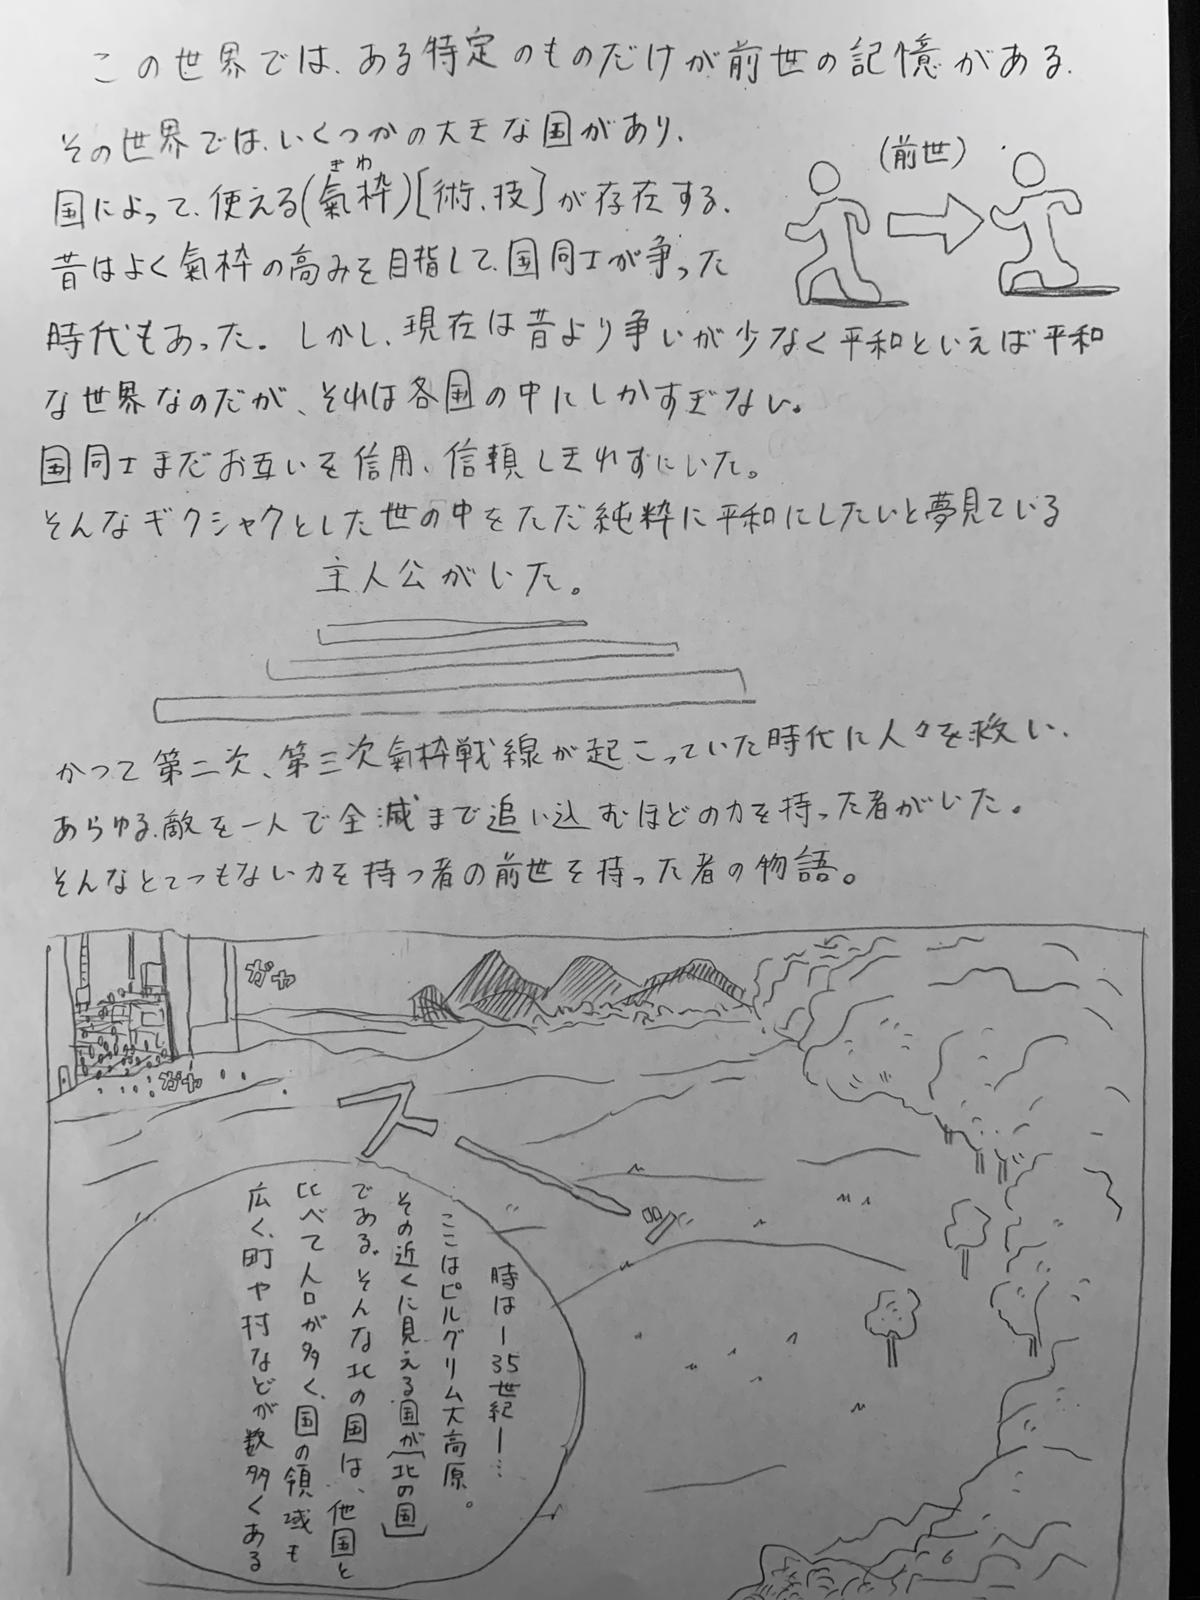 この世界では、ある特定のものだけが前世の記憶がある.
その世界では、いくつかの大きな国があり、
(前世)
きわ
国によって、使える(氣枠)[術、技]が存在する.
昔はよく氣枠の高みを目指して、国同士が争った
時代もあった。しかし、現在は昔より争いが少なく平和といえば平和
な世界なのだが、それは各国の中にしかすぎない。
国同士まだお互いを信用、信頼しきれずにいた。
そんなギクシャクとした世の中をただ純粋に平和にしたいと夢見ている
主人公がいた。
かつて第二次、第三次氣枠戦線が起こっていた時代に人々を救い、
あらゆる敵を一人で全滅まで追い込むほどの力を持った者がいた。
そんなとてつもない力を持つ者の前世を持った者の物語。
ガヤ
ガヤ
ス
時は―35世紀―…
ここはピルグリム大高原。
その近くに見える国が[北の国]
である。そんな北の国は、他国と
比べて人口が多く、国の領域も
広く、町や村などが数多くある